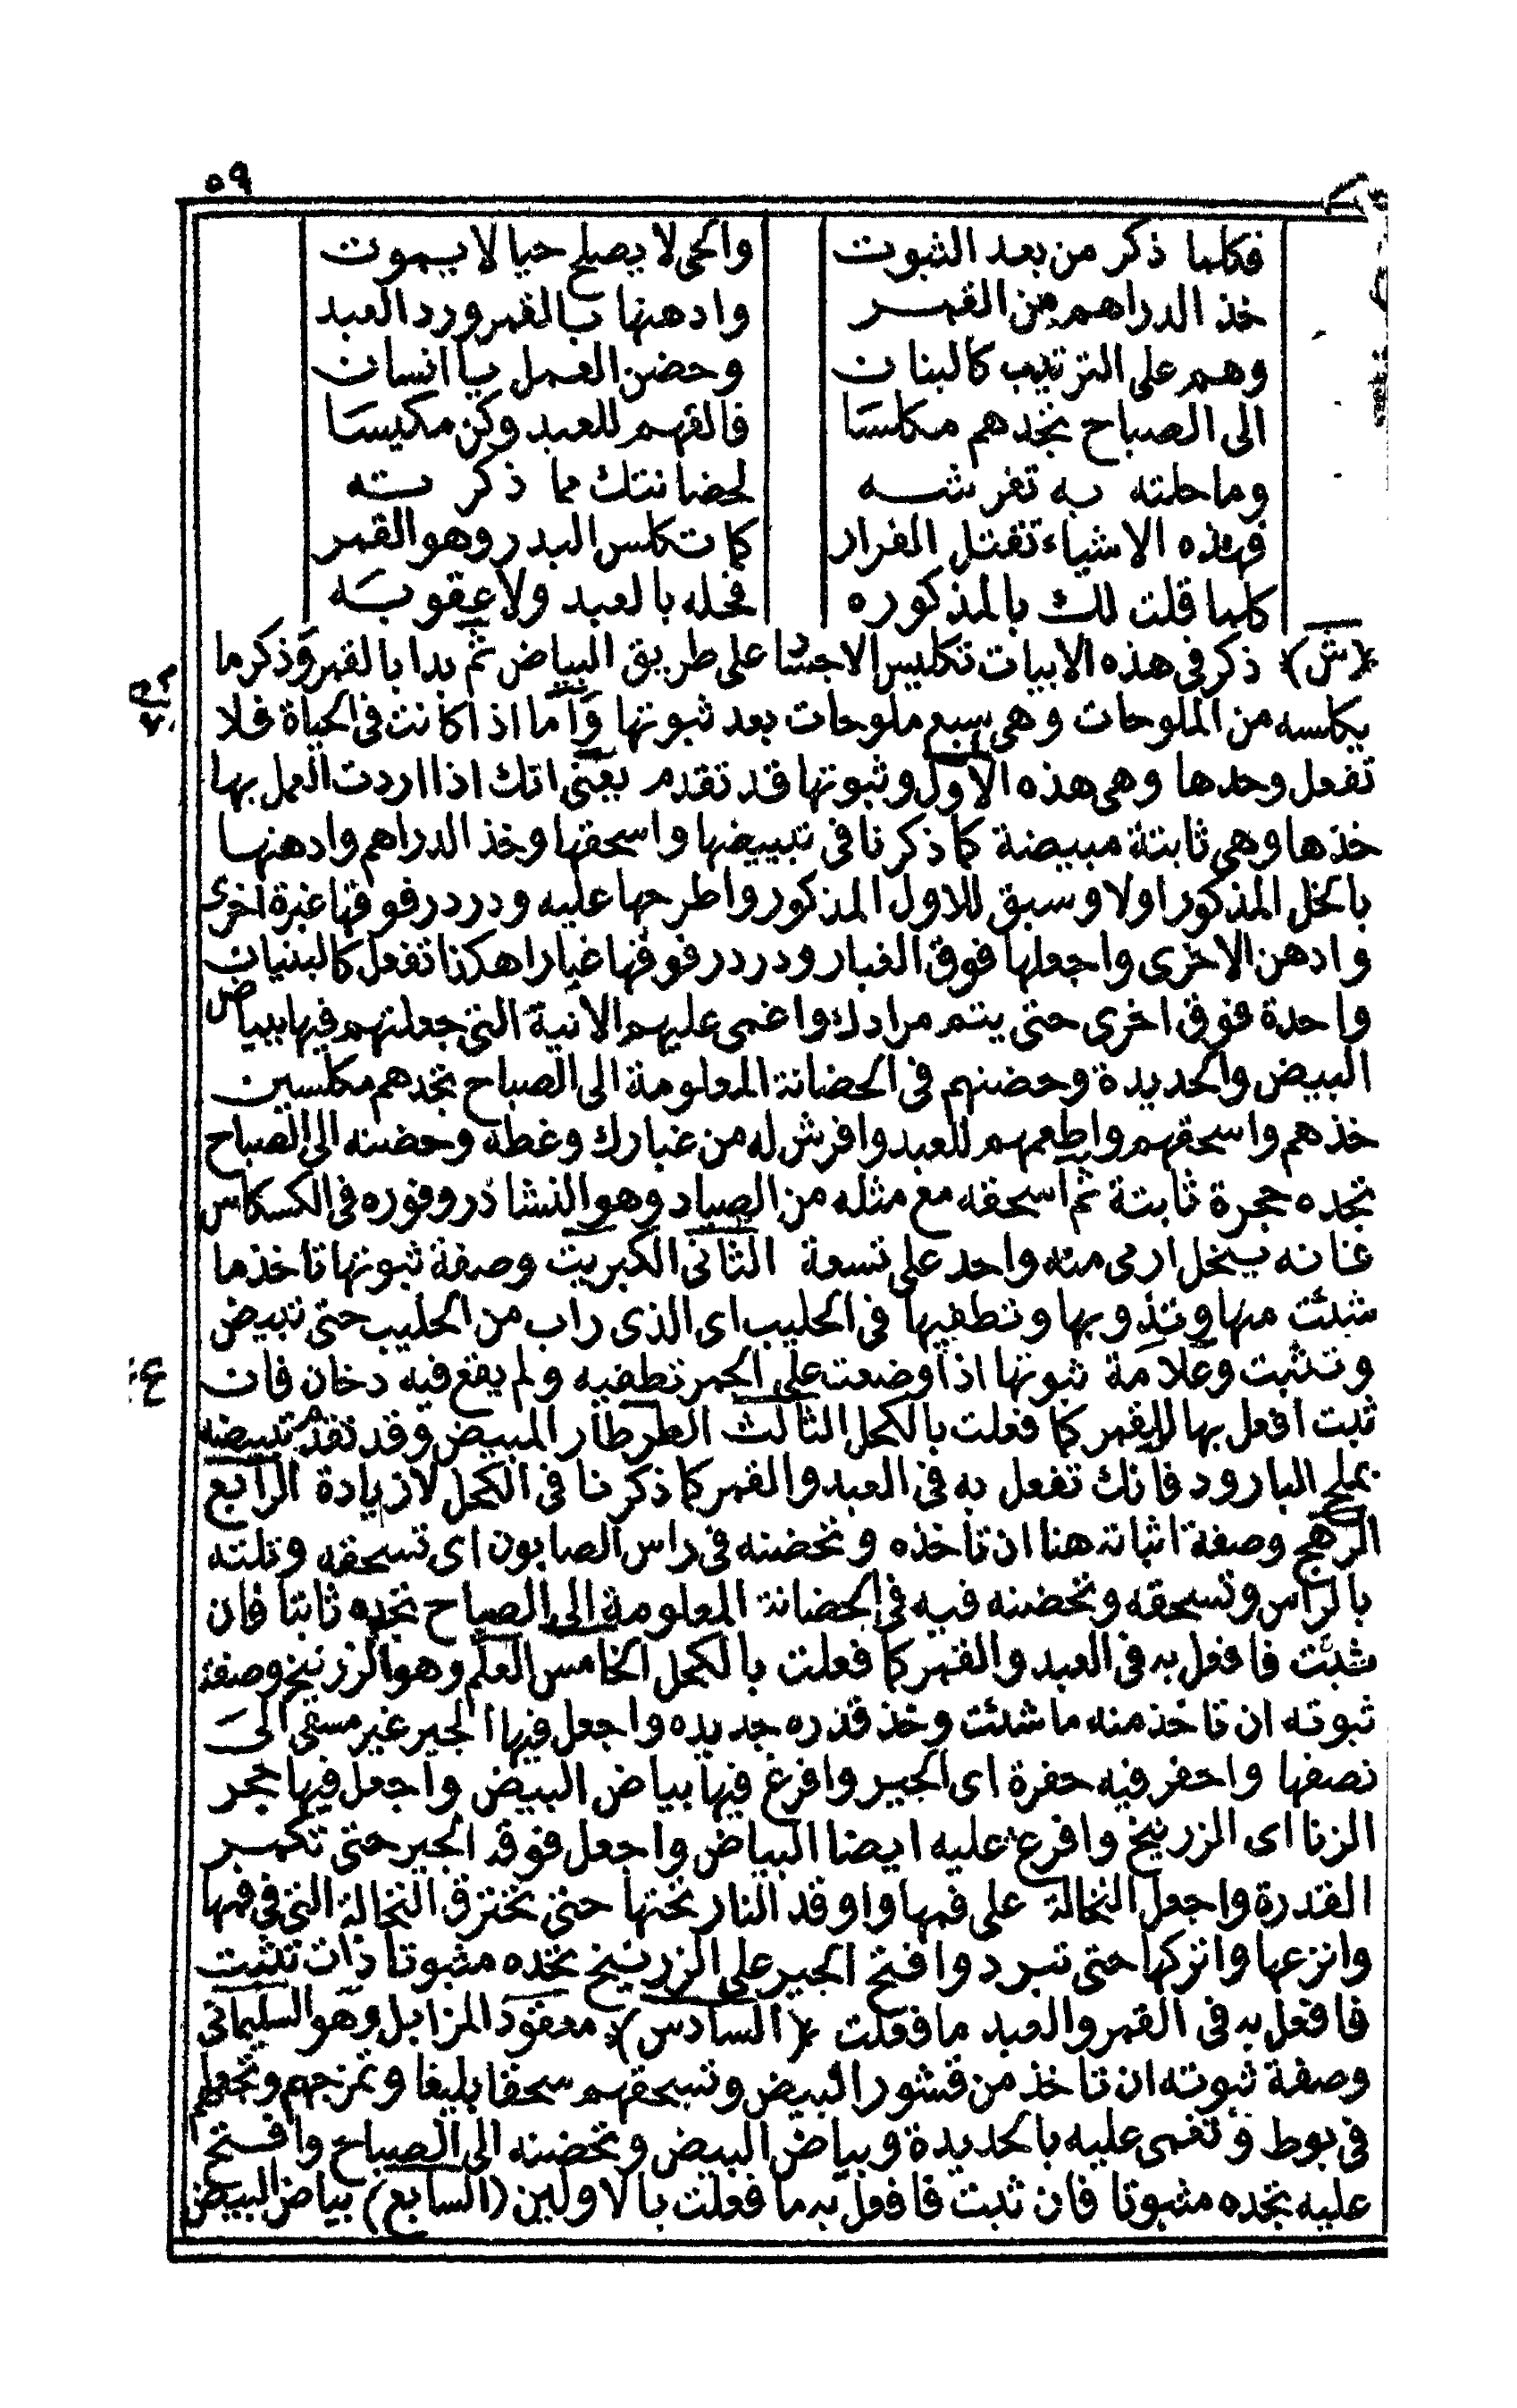 ٥٩
فكلما ذكر من بعد الثبوت والحى لا يصلح حيا لا يموت
خذ الدراهم من القمر وادهنها بالقمر ورد العبد
وهم على الترتيب كالبنان وحضن العمل يا انسان
الى الصباح تجدهم مكلسا فالقهم للعبد وكن مكيسا
وما حلته به تفرشه لحضانتك مما ذكرته
فهذه الاشياء تقتل الفرار كما تكلس البدر وهو القمر
كلما قلت لك بالمذكوره فحله بالعبد ولا عقوبه
(ش) ذكر فى هذه الابيات تكليس الاجساد على طريق البياض ثم بدا بالقمر وذكر ما
يكلسه من الملوحات وهى سبع ملوحات بعد ثبوتها واما اذا كانت فى الحياة فلا
تفعل وحدها وهى هذه الاول وثبوتها قد تقدم يعنى انك اذا اردت العمل بها
خذها وهى ثابتة مبيضة كما ذكرنا فى تبييضها واسحقها وخذ الدراهم وادهنها
بالخل المذكور اولا وسبق للاول المذكور واطرحها عليه ودردر فوقها غبرة اخرى
وادهن الاخرى واجعلها فوق الغبار ودردر فوقها غبارا هكذا تفعل كالبنيان
واحدة فوق اخرى حتى يتم مرادك واغمى عليهم الانية التى جعلتهم فيها ببياض
البيض والحديدة وحضنهم فى الحضانة المعلومة الى الصباح تجدهم مكلسين
خذهم واسحقهم واطعمهم للعبد وافرش له من غبارك وغطه وحضنه الى الصباح
تجده حجرة ثابتة ثم اسحقه مع مثله من الصياد وهو النشادر وفوره فى الكسكاس
فانه ينحل ارمى منه واحد على تسعة الثانى الكبريت وصفة ثبوتها تاخذ ما
شئت منها وتذوبها وتطفيها فى الحليب اى الذى راب من الحليب حتى تبيض
وتثبت وعلامة ثبوتها اذا وضعت على الجمر تطفيه ولم يقع فيه دخان فان
ثبت افعل بها للقمر كما فعلت بالكحل الثالث الطرطار المبيض وقد تقدم تبييضه
بملح البارود فانك تفعل به فى العبد والقمر كما ذكرنا فى الكحل لازيادة الرابع
الرهج وصفة اثباته هنا ان تاخذه وتحضنه فى راس الصابون اى تسحقه وتلته
بالراس وتسحقه وتحضنه فيه فى الحضانة المعلومة الى الصباح تجده ثابتا فان
شئت فافعل به فى العبد والقمر كما فعلت بالكحل الخامس العلم وهو الزرنيخ وصفة
ثبوته ان تاخذ منه ما شئت وخذ قدره جديده واجعل فيها الجير غير مسقى الى
نصفها واحفر فيه حفرة اى الجير وافرغ فيها بياض البيض واجعل فيها حجر
الزنا اى الزرنيخ وافرغ عليه ايضا البياض واجعل فوقه الجير حتى تكمبر
القدرة واجعل النخالة على فمها واوقد النار تحتها حتى تحترق النخالة التى فى فمها
وانزعها واتركها حتى تبرد وافتح الجير على الزرنيخ تجده مثبوتا ذات تثبت
فافعل به فى القمر والعبد ما فعلت (السادس) معقود المزابل وهو السليمانى
وصفة ثبوته ان تاخذ من قشور البيض وتسحقهم سحقا بليغا وتمزجهم وتجعلهم
فى بوط وتغمى عليه بالحديدة وبياض البيض وتحضنه الى الصباح وافتح
عليه تجده مثبوتا فان ثبت فافعل به ما فعلت بالاولين (السابع) بياض البيض